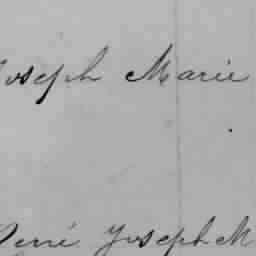 Joseph Marie
René Joseph M